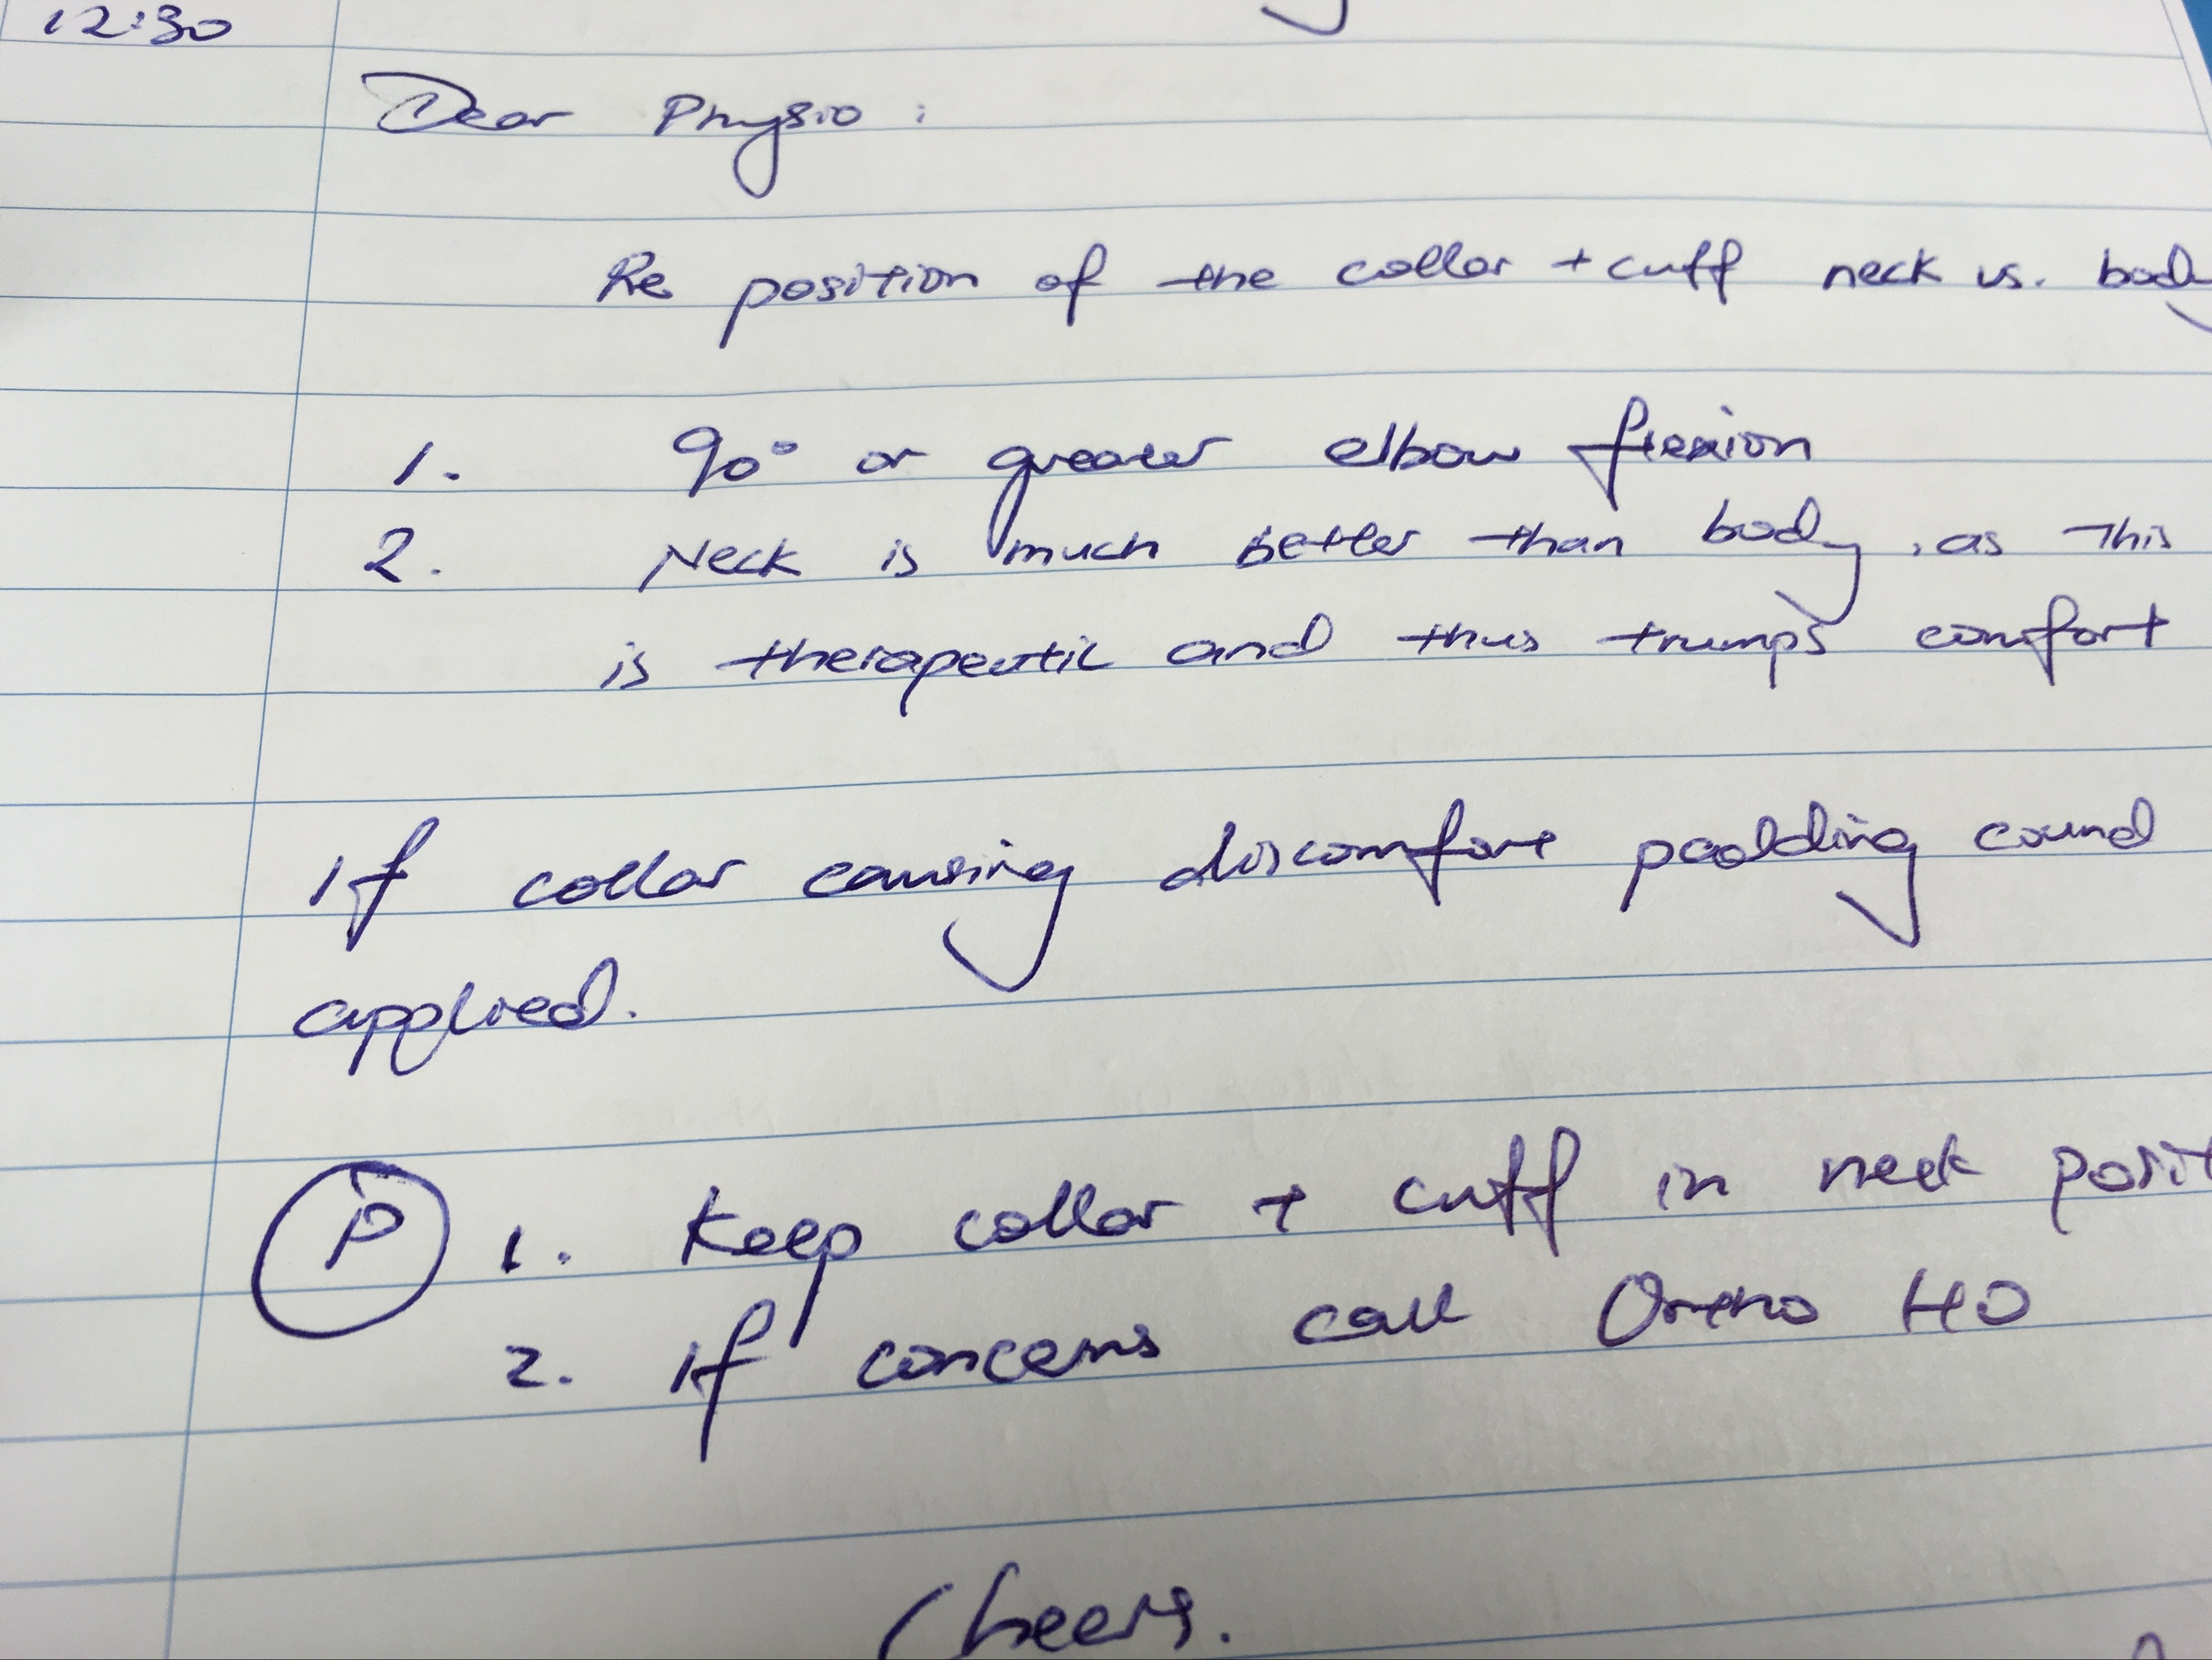 12:30
Dear Physio:
Re position of the collar + cuff neck vs. body
1. 90° or greater elbow flexion
2. Neck is much better than body, as this
is therapeutic and thus trumps comfort
If collar causing discomfort padding could
applied.
P 1. Keep collar + cuff in neck posit
2. If concerns call Ortho HO
Cheers.